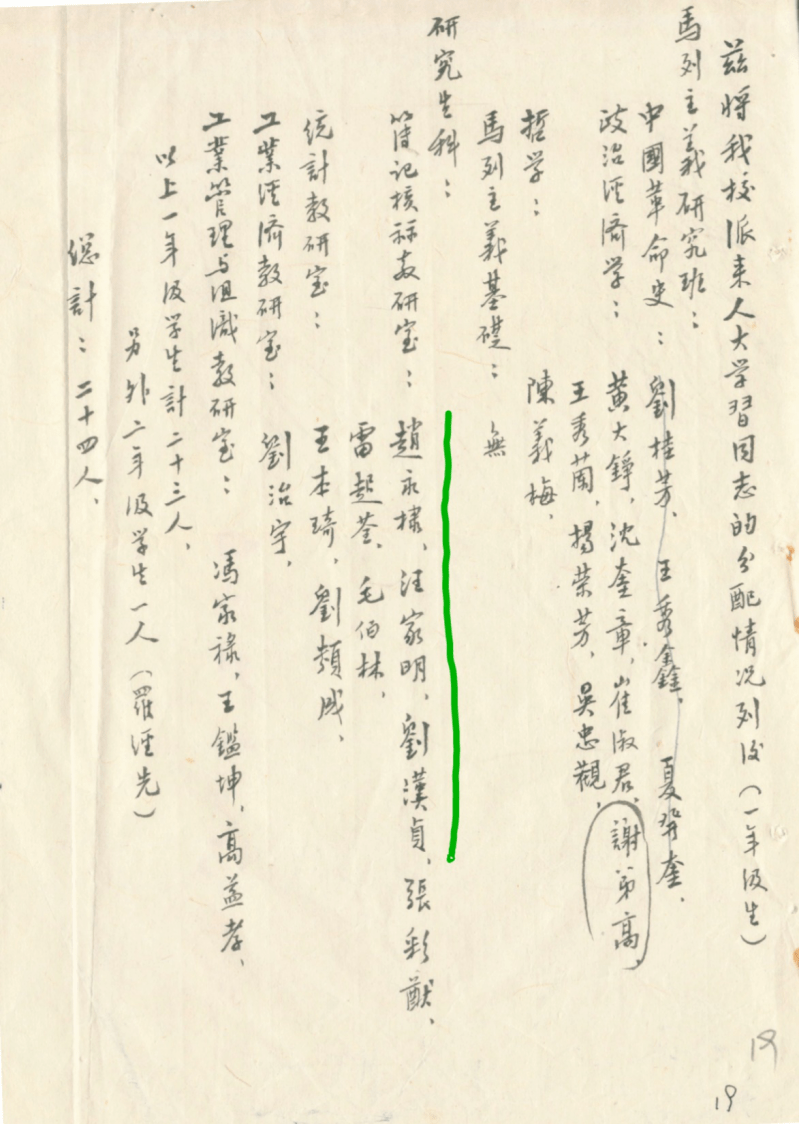 茲將我校派来人大学習同志的分配情况列後(一年级生)
馬列主義研究班:
中國革命史: 劉桂芳、王秀鑫、夏羿奎、
政治经濟学: 黄大錚、沈奎章、崔淑君、謝弟高、
王秀蘭、揚荣芳、吳忠觀、
哲学: 陳義梅、
馬列主義基礎: 無
研究生科:
簿记核祘教研室: 趙永棣、汪家明、劉漢貞、張彩猷、
雷起荃、毛伯林、
统計教研室: 王本琦、劉頪成、
工業经濟教研室: 劉治宇、
工業管理与组識教研室: 馮家禄、王鑑坤、高益孝、
以上一年级学生計二十三人、
另外二年级学生一人(羅经先)
總計:二十四人、
19
19